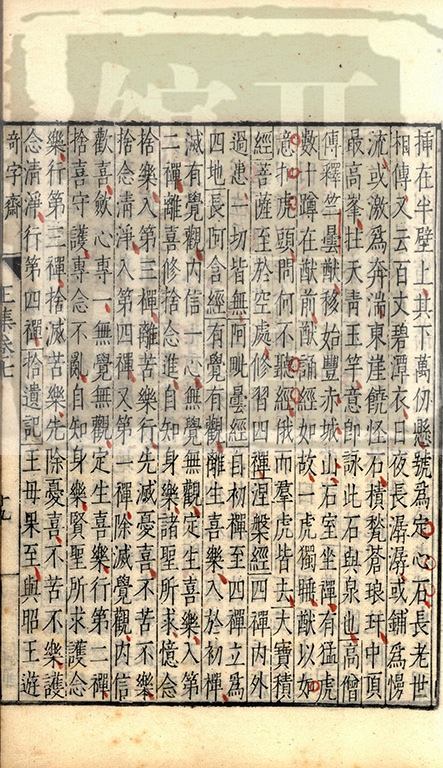 插在半壁上其下萬仞懸號為定心石長老世
相傳又云百丈碧潭衣日夜長潺潺或鋪為慢
流或激為奔湍東崖饒怪石積甃蒼琅玕中頂
最高峯拄天青玉竿意即詠此石與泉也高僧
傳釋竺曇猷移始豐赤城山石室坐禪有猛虎
數十蹲在猷前猷誦經如故一虎獨睡猷以如
意扣虎頭問何不聽經俄而羣虎皆去大寶積
經菩薩至於空處修習四禪涅槃經四禪內外
過患一切皆無阿毗曇經自初禪至四禪立為
四地長阿含經有覺有觀離生喜樂入於初禪
滅有覺觀內信一心無覺無觀定生喜樂入第
二禪離喜修捨念進自知身樂諸聖所求憶念
捨樂入第三禪離苦樂行先滅憂喜不苦不樂
捨念清淨入第四禪又第一禪除滅覺觀內信
歡喜斂心專一無覺無觀定生喜樂行第二禪
捨喜守護專念不亂自知身樂賢聖所求護念
樂行第三禪捨滅苦樂先除憂喜不苦不樂護
念清淨行第四禪拾遺記王母果至與昭王遊
奇字齋 王集卷七